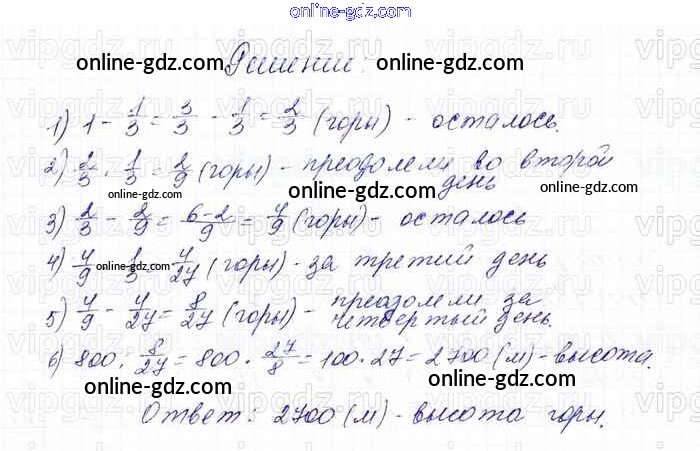 online-gdz.com
Решение:
online-gdz.com online-gdz.com
1) 1 - 1/3 = 3/3 - 1/3 = 2/3 (горы) - осталось.
2) 2/3 · 1/3 = 2/9 (горы) - преодолели во второй
день
online-gdz.com online-gdz.com online-gdz.com
3) 2/3 - 2/9 = (6-2)/9 = 4/9 (горы) - осталось
4) 4/9 · 1/3 = 4/27 (горы) - за третий день
online-gdz.com online-gdz.com
5) 4/9 - 4/27 = 8/27 (горы) - преодолели за
четвертый день.
6) 800 : 8/27 = 800 · 27/8 = 100 · 27 = 2700 (м) - высота.
online-gdz.com online-gdz.com
Ответ: 2700 (м) - высота горы.
online-gdz.com
vipgdz.ru